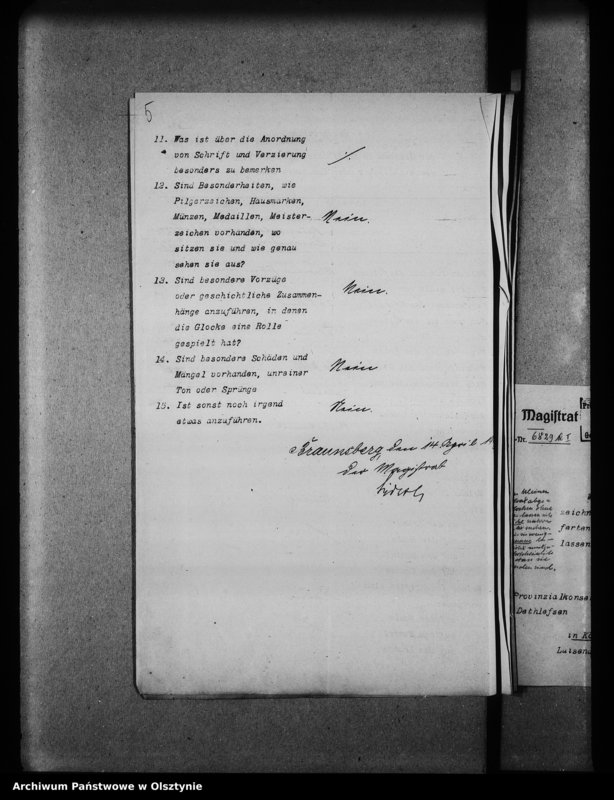 5
11. Was ist über die Anordnung
von Schrift und Verzierung ./.
besonders zu bemerken
12. Sind Besonderheiten, wie
Pilgerzeichen, Hausmarken,
Münzen, Medaillen, Meister- Nein.
zeichen vorhanden, wo
sitzen sie und wie genau
sehen sie aus?
13. Sind besondere Vorzüge
oder geschichtliche Zusammen- Nein.
hänge anzuführen, in denen
die Glocke eine Rolle
gespielt hat?
14. Sind besondere Schäden und
Mängel vorhanden, unreiner Nein
Ton oder Sprünge
15. Ist sonst noch irgend Nein.
etwas anzuführen.
Braunsberg, den 14 April
Der Magistrat
Magistrat
Nr. 6829 M I
zeichn
farten
lassen
Provinzialkonse
Dethlefsen
in Kö
Luisena
Archiwum Państwowe w Olsztynie